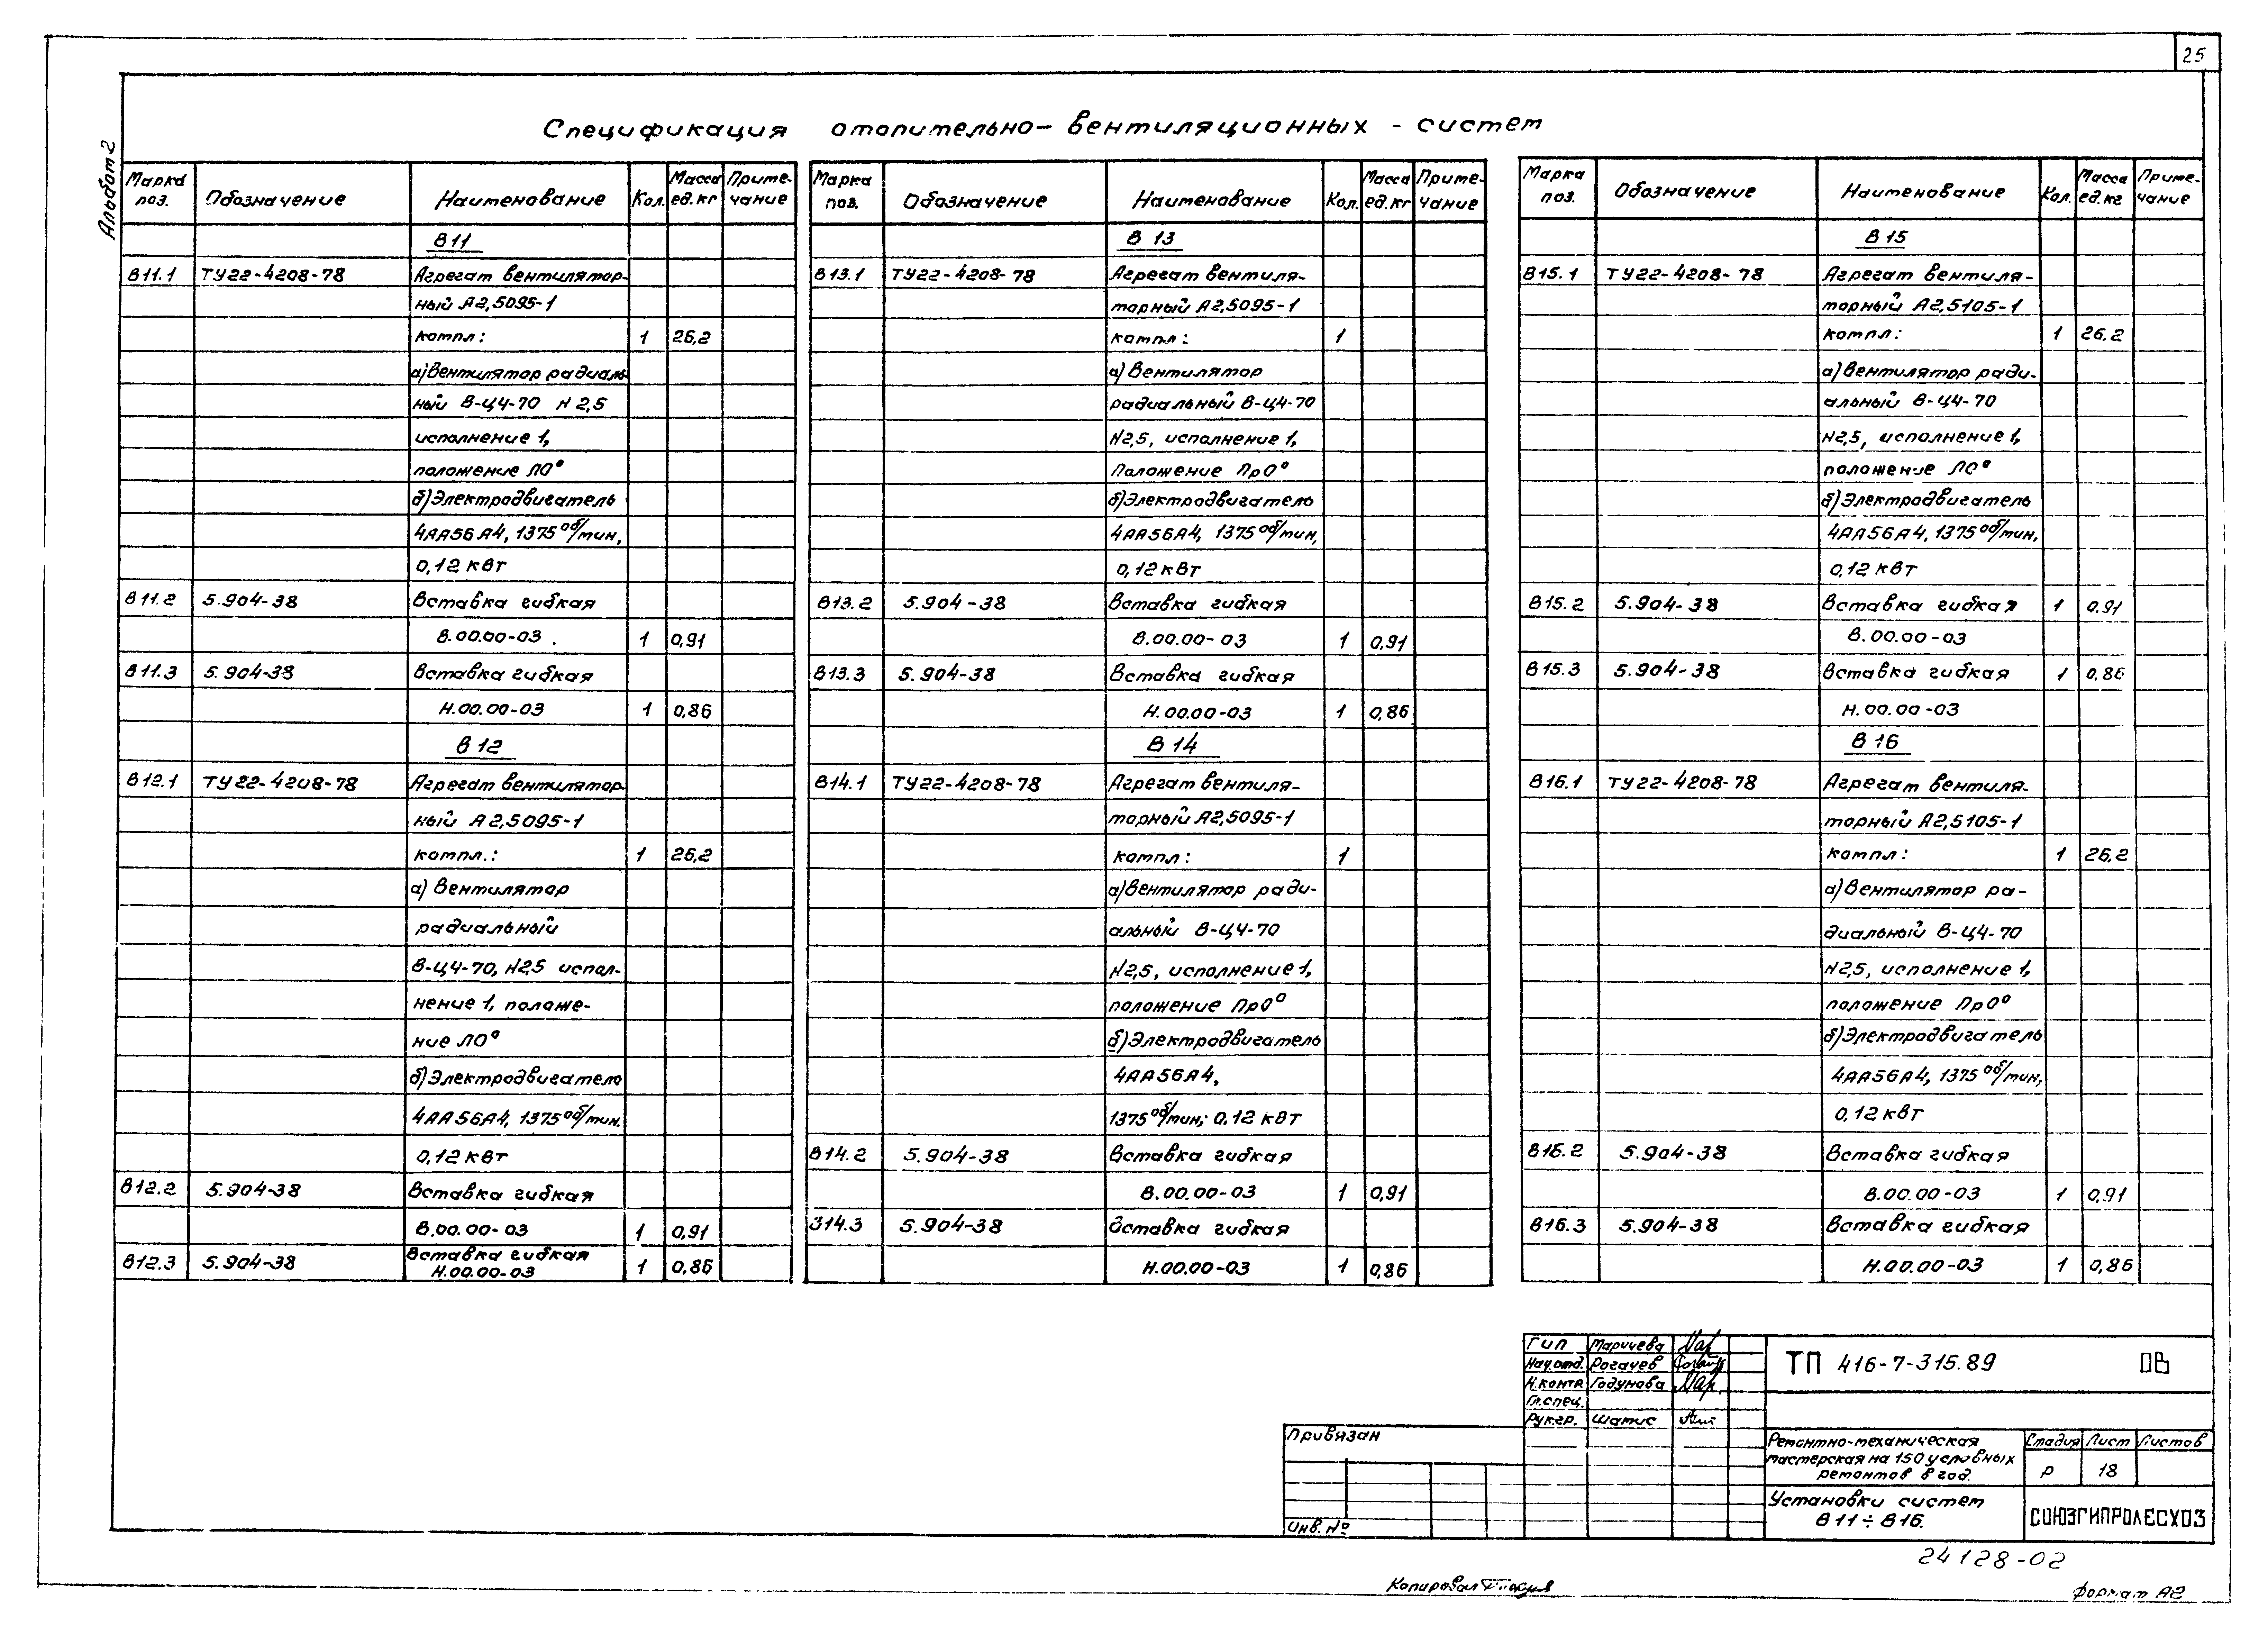 25
Альбом 2
Спецификация отопительно-вентиляционных - систем
Марка поз. Обозначение Наименование Кол. Масса ед. кг Приме- чание
В11
В11.1 ТУ22-4208-78 Агрегат вентилятор-
ный А2,5095-1
компл: 1 26,2
а) Вентилятор радиаль-
ный В-Ц4-70 N 2,5
исполнение 1,
положение Л0°
б) Электродвигатель
4АА56А4, 1375 об/мин,
0,12 кВт
В11.2 5.904-38 Вставка гибкая
В.00.00-03 1 0,91
В11.3 5.904-38 Вставка гибкая
Н.00.00-03 1 0,86
В12
В12.1 ТУ22-4208-78 Агрегат вентилятор-
ный А2,5095-1
компл.: 1 26,2
а) Вентилятор
радиальный
В-Ц4-70, N2,5 испол-
нение 1, положе-
ние Л0°
б) Электродвигатель
4АА56А4, 1375 об/мин.
0,12 кВт
В12.2 5.904-38 Вставка гибкая
В.00.00-03 1 0,91
В12.3 5.904-38 Вставка гибкая
Н.00.00-03 1 0,86
Марка поз. Обозначение Наименование Кол. Масса ед. кг Приме- чание
В 13
В13.1 ТУ22-4208-78 Агрегат вентиля-
торный А2,5095-1
компл: 1
а) Вентилятор
радиальный В-Ц4-70
N2,5, исполнение 1,
Положение Пр0°
б) Электродвигатель
4АА56А4, 1375 об/мин,
0,12 кВт
В13.2 5.904-38 Вставка гибкая
В.00.00-03 1 0,91
В13.3 5.904-38 Вставка гибкая
Н.00.00-03 1 0,86
В 14
В14.1 ТУ22-4208-78 Агрегат вентиля-
торный А2,5095-1
компл: 1
а) Вентилятор ради-
альный В-Ц4-70
N2,5, исполнение 1,
положение Пр0°
б) Электродвигатель
4АА56А4,
1375 об/мин; 0,12 кВт
В14.2 5.904-38 Вставка гибкая
В.00.00-03 1 0,91
В14.3 5.904-38 Вставка гибкая
Н.00.00-03 1 0,86
Марка поз. Обозначение Наименование Кол. Масса ед. кг Приме- чание
В 15
В15.1 ТУ22-4208-78 Агрегат вентиля-
торный А2,5105-1
компл: 1 26,2
а) Вентилятор ради-
альный В-Ц4-70
N2,5, исполнение 1,
положение Л0°
б) Электродвигатель
4АА56А4, 1375 об/мин,
0,12 кВт
В15.2 5.904-38 Вставка гибкая 1 0.91
В.00.00-03
В15.3 5.904-38 Вставка гибкая 1 0,86
Н.00.00-03
В 16
В16.1 ТУ22-4208-78 Агрегат вентиля-
торный А2,5105-1
компл: 1 26,2
а) Вентилятор ра-
диальный В-Ц4-70
N2,5, исполнение 1,
положение Пр0°
б) Электродвигатель
4АА56А4, 1375 об/мин,
0,12 кВт
В16.2 5.904-38 Вставка гибкая
В.00.00-03 1 0,91
В16.3 5.904-38 Вставка гибкая
Н.00.00-03 1 0,86
ГИП Маричева
Нач.отд. Рогачев
Н.контр Годунова
Гл.спец.
Рук.гр. Шатис
ТП 416-7-315.89 ОВ
Привязан
Инв. №
Ремонтно-механическая
мастерская на 150 условных
ремонтов в год.
Стадия Лист Листов
Р 18
Установки систем
В11÷В16.
СОЮЗГИПРОЛЕСХОЗ
24128-02
Копировал
формат А2